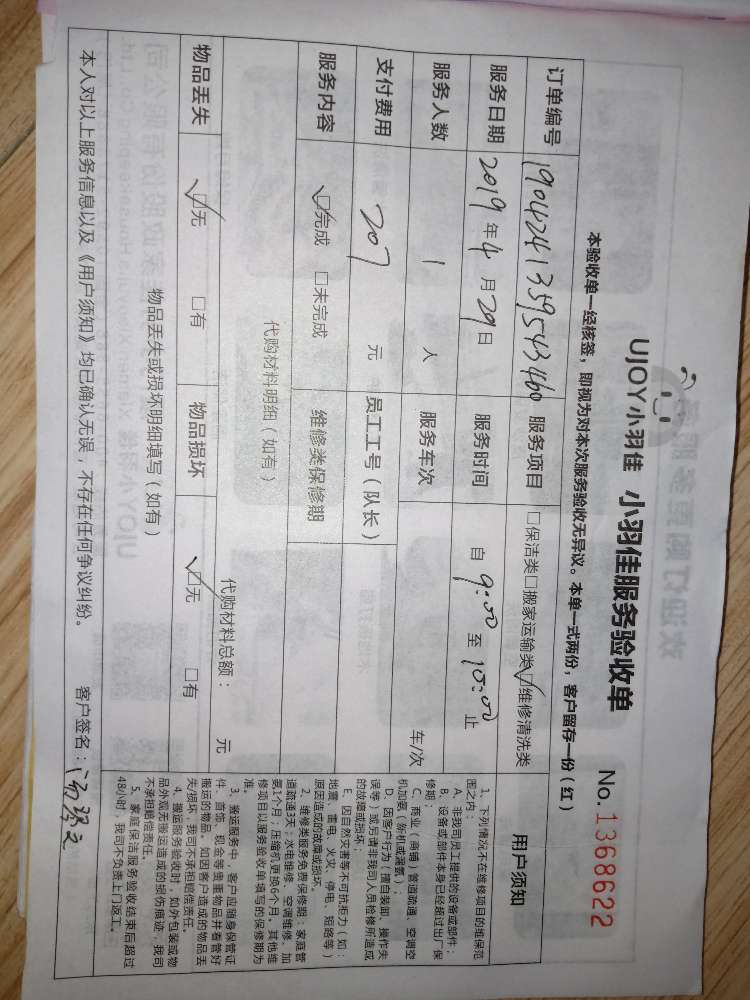 UJOY小羽佳 小羽佳服务验收单 No. 1368622
本验收单一经核签，即视为对本次服务验收无异议。本单一式两份，客户留存一份（红）
订单编号 1904241359543460 服务项目 □保洁类□搬家运输类☑维修清洗类
服务日期 2019年4月29日 服务时间 自 9:00 至 10:00 止
服务人数 1 人 服务车次 车/次
支付费用 207 元 员工工号（队长）
服务内容 ☑完成 □未完成 维修类保修期
代购材料明细（如有）
代购材料总额： 元
物品丢失 ☑无 □有 物品损坏 ☑无 □有
物品丢失或损坏明细填写（如有）
本人对以上服务信息以及《用户须知》均已确认无误，不存在任何争议纠纷。 客户签名：
用户须知
1、下列情况不在维修项目的维保范
围之内：
A、非我司员工提供的设备或部件；
B、设备或部件本身已经超过出厂保
修期；
C、商业（商铺）管道疏通、空调空
机加氨（新机或漏氨）；
D、因客户行为（擅自装卸、操作失
误等）或另请非我司人员检修所造成
的故障或损坏；
E、因自然灾害等不可抗拒力（如：
地震、雷电、火灾、停电、短路等）
原因造成的故障或损坏。
2、维修类服务免费保修期：家庭管
道疏通3天；水电维修、空调维修、加
氨1个月；压缩机更换6个月。其他维
修项目以服务验收单填写的保修期为
准。
3、搬运服务中，客户应随身保管证
件、首饰、现金等贵重物品并看管好
搬运的物品。如因客户造成的物品丢
失/损坏，我司不承担赔偿责任。
4、搬运服务验收时，如外包装或物
品外观无搬运造成的损伤痕迹，我司
不承担赔偿责任。
5、家庭保洁服务验收结束后超过
48小时，我司不负责上门返工。